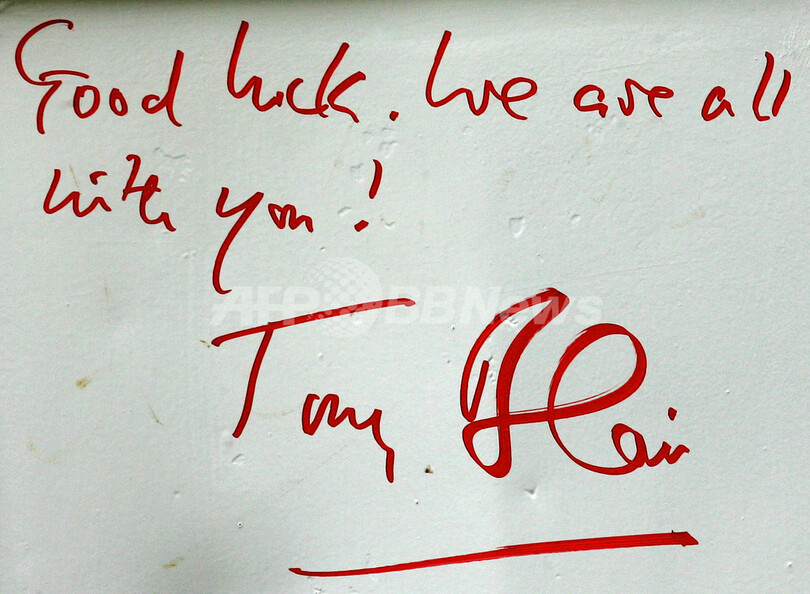 Good luck. We are all
with you!
AFP BBNews
Tony Blair